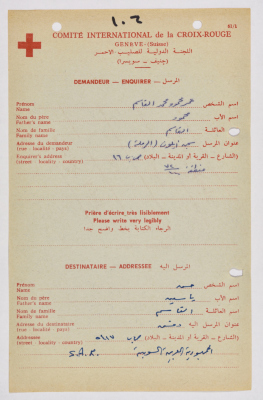 1.2
61/1
COMITÉ INTERNATIONAL de la CROIX-ROUGE
GENÈVE-(Suisse)
اللجنة الدولية للصليب الاحمر
(جنيف - سويسرا)
DEMANDEUR - ENQUIRER - المرسل
Prénom
Name
اسم الشخص عمر محمود محمد القاسم
Nom du père
Father's name
اسم الأب محمود
Nom de famille
Family name
العائلة القاسم
Adresse du demandeur
(rue - localité - pays)
عنوان المرسل سجن
Enquirer's address
(street - locality - country)
(الشارع - القرية أو المدينة - البلاد) ص.ب ١٦
Prière d'écrire très lisiblement
Please write very legibly
الرجاء الكتابة بخط واضح جدا
DESTINATAIRE - ADDRESSEE - المرسل اليه
Prénom
Name
اسم الشخص
Nom du père
Father's name
اسم الأب ياسين
Nom de famille
Family name
العائلة القاسم
Adresse du destinataire
(rue - localité - pays)
عنوان المرسل اليه دمشق
Addressee
(street - locality - country)
(الشارع - القرية أو المدينة - البلاد) ص.ب
الجمهورية العربية السورية
S.A.R.